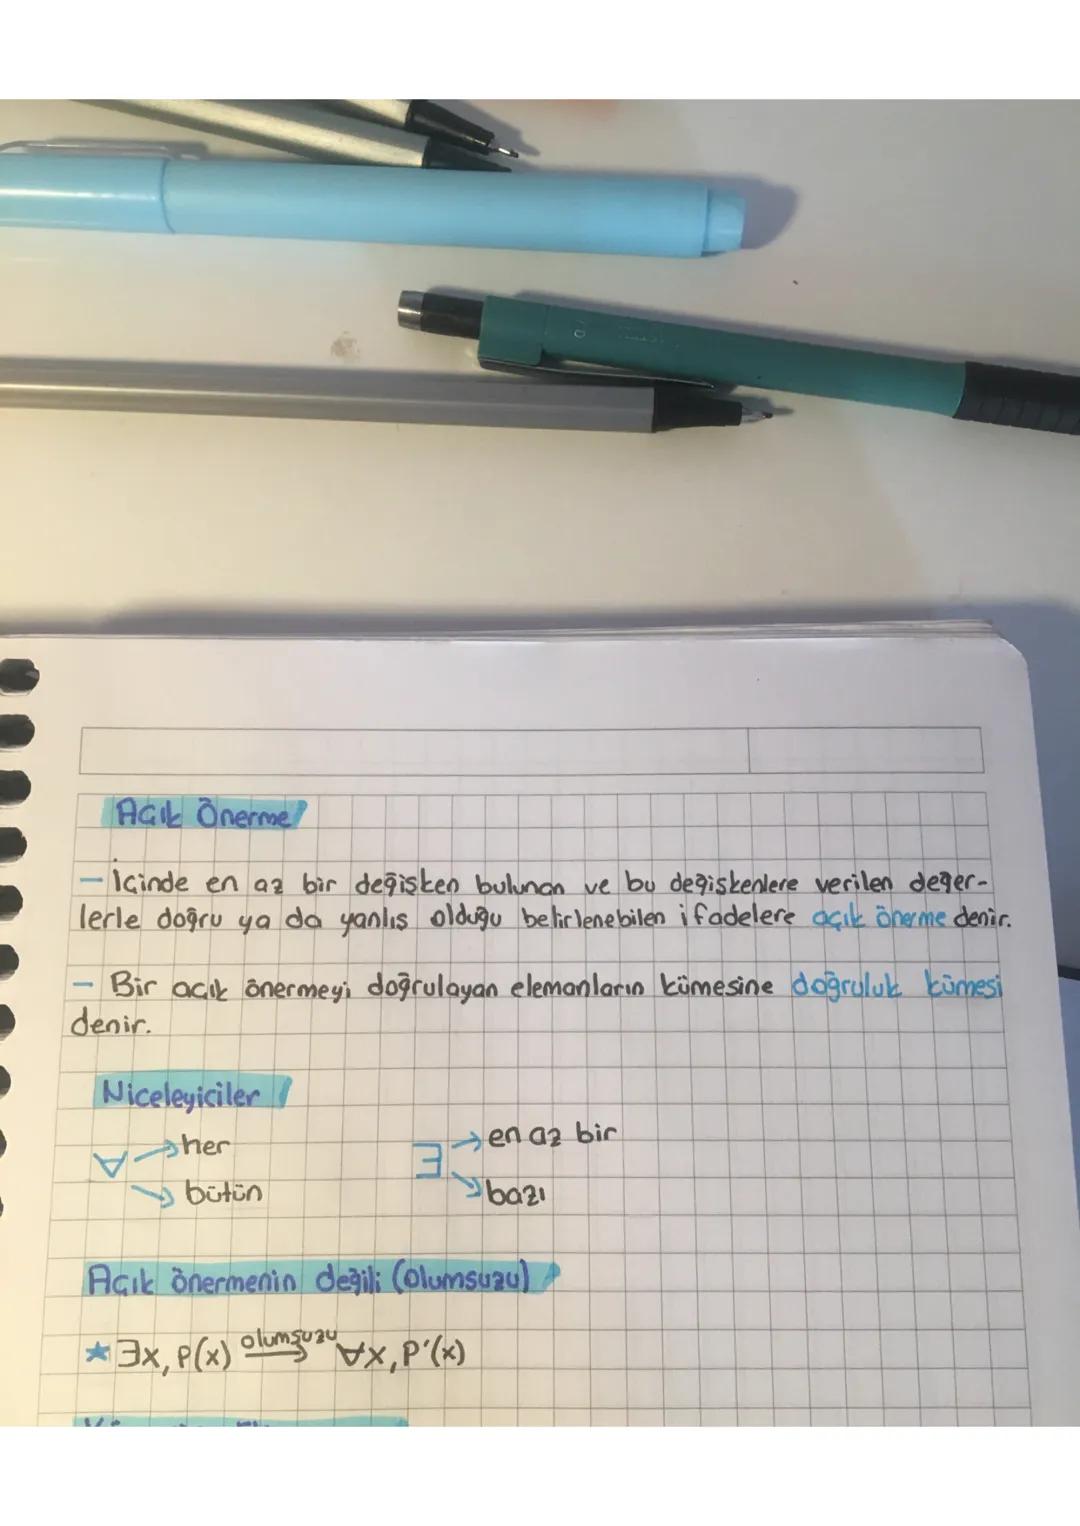 Açık Önerme
- İçinde en az bir değişken bulunan ve bu değişkenlere verilen değer-
lerle doğru ya da yanlış olduğu belirlenebilen ifadelere açık önerme denir.
- Bir açık önermeyi doğrulayan elemanların kümesine doğruluk kümesi
denir.
Niceleyiciler
∀ → her
→ bütün
∃ → en az bir
→ bazı
Açık önermenin değili (olumsuzu)
★ ∃x, P(x) olumsuzu → ∀x, P'(x)